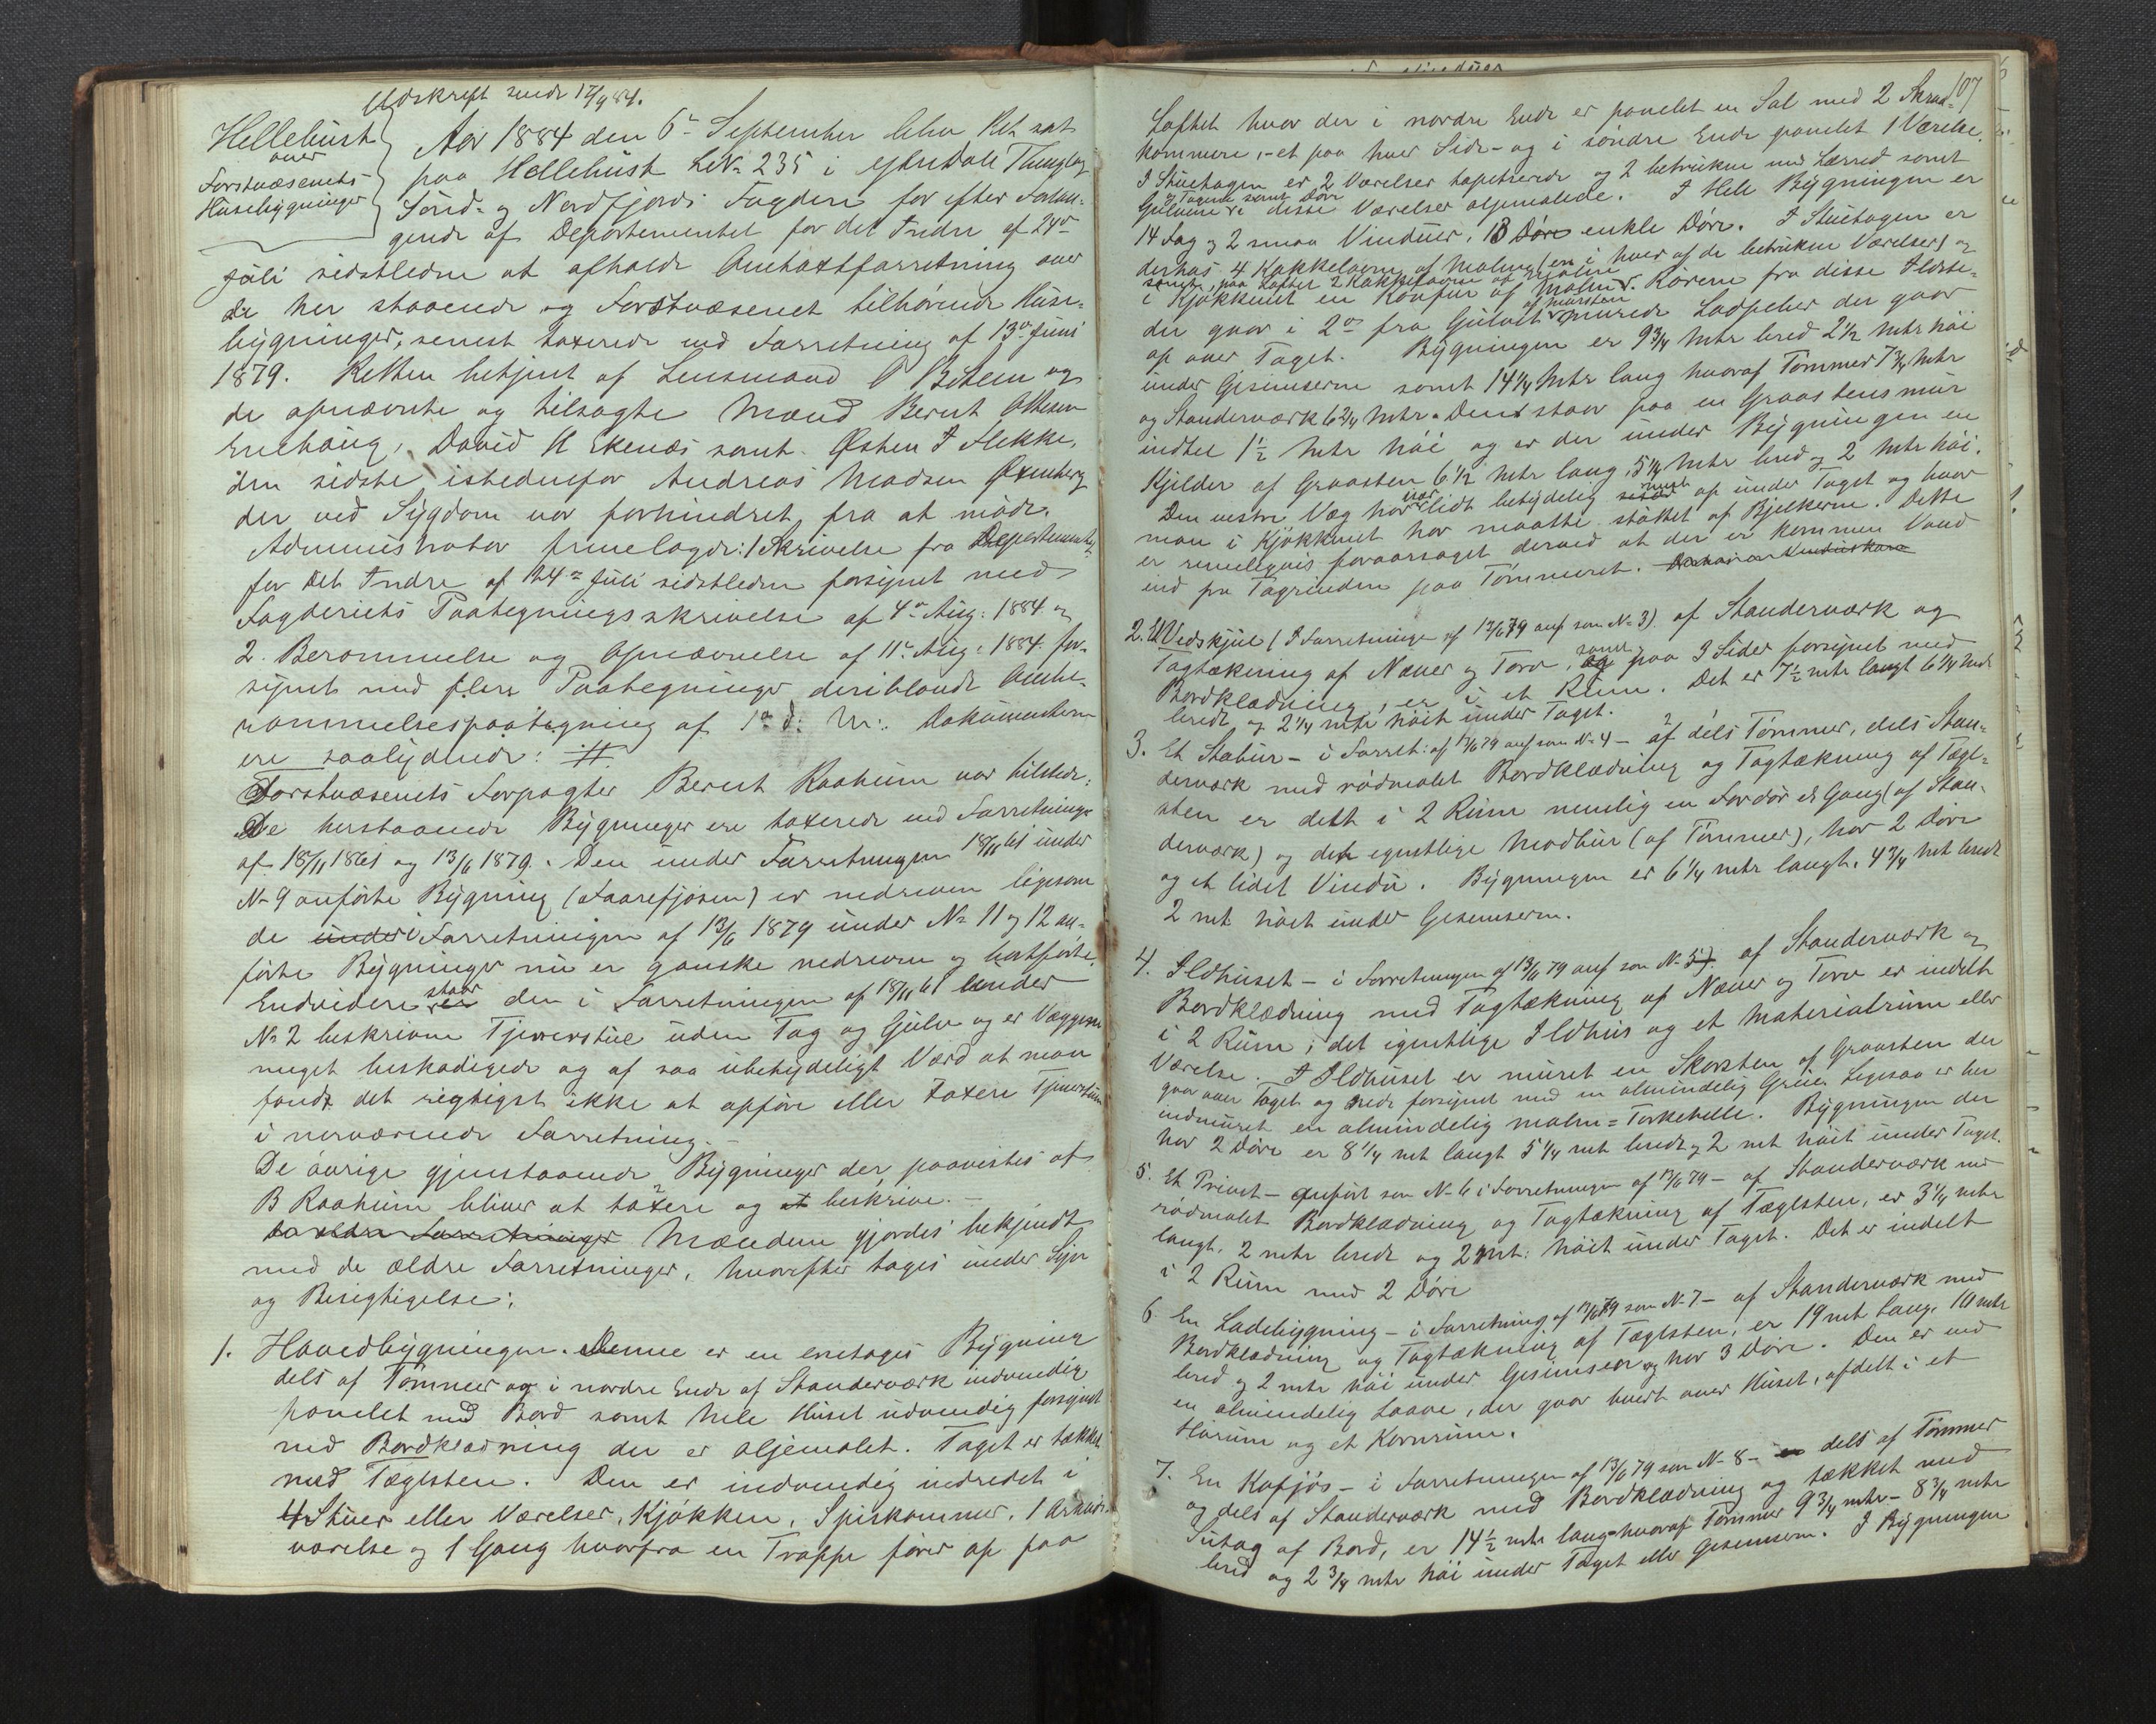 Udskrift sendt 17/9 84.
Hellebust
over
Forstvæsenets
Husebygninger
Aar 1884 den 6te September blev Ret sat
paa Hellebust LNo 235 i Ytre Dale Thinglag
Sønd- og Nordfjords Fogderi for efter Forlan-
gende af Departementet for det Indre af 24de
Juli sidstleden at afholde Omtaxtforretning over
de her staaende og Forstvæsenet tilhørende Huse-
bygninger, senest taxerede ved Forretning af 13de Juni
1879. Retten betjent af Lensmand
de opnævnte og tilsagte Mænd Berent Ottesen
David A Ekenæs samt Østen I Flekke,
den sidste istedenfor Andreas Madsen Øxenberg
der ved Sygdom var forhindret fra at møde.
Administrator fremlagde: 1 Skrivelse fra Departementet
for Det Indre af 24de Juli sidstleden forsynet med
Fogderiets Paategningsskrivelse af 4de Aug: 1884 og
2. Berammelse og Opnævnelse af 11te Aug: 1884 for-
synet med flere Paategninger deriblandt Ombe-
rammelsespaategning af 1ste d: M:. Dokumenterne
ere saalydende: #
Forstvæsenets Forpagter Berent Raaheim var tilstede.
De herstaaende Bygninger ere taxerede ved Forretninger
af 18/11 1861 og 13/6 1879. Den under Forretningen 18/11 61 under
No 9 anførte Bygning (Faarefjøsen) er nedreven ligesom
de under i Forretningen af 13/6 1879 under No 11 og 12 an-
førte Bygninger nu er ganske nedrevne og bortførte.
Endvidere staar den i Forretningen af 18/11 61 under
No 2 beskrevne Tjenerstue uden Tag og Gulv og er Væggene
meget beskadigede og af saa ubetydeligt Værd at man
fandt det rigtigst ikke at opføre eller taxere Tjenerstuen
i nerværende Forretning.-
De øvrige gjenstaaende Bygninger der paavistes af
B Raaheim bliver at taxere og at beskrive.-
Mændene gjordes bekjendt
med de ældre Forretninger, hvorefter toges under Syn
og Besigtigelse:
1. Hovedbygningen. Denne er en enetages Bygning
dels af Tømmer og i nordre Ende af Standerværk indvendig
panelet med Bord samt hele Huset udvendig forsynet
med Bordklædning der er oljemalet. Taget er tækket
med Tæglsten. Den er indvendig indredet i
4 Stuer eller Værelser, Kjøkken, Spiskammer, 1 Arkiv-
værelse og 1 Gang hvorfra en Trappe fører op paa
107
Loftet hvor der i nordre Ende er panelet en Sal med 2 Skraa-
kammere,- et paa hver Side- og i søndre Ende panelet 1 Værelse.
I Stuetagen er 2 Værelser tapetserede og 2 betrukne med Lærred samt
og Tagene samt Døre
Gulvene i disse Værelser oljemalede. I Hele Bygningen er
14 Fag og 2 smaa Vinduer, 18 Døre enkle Døre. I Stuetagen er
derhos 4 Kakkelovne af Malm (en i hver af de betrukne Værelser) og
samt paa Loftet 2 Kakkelovne af Malm
i Kjøkkenet en Komfur af Malm. Rørene fra disse Ildste-
af mursten
der gaar i 2de fra Gulvet murede Ladpeber der gaar
op over Taget. Bygningen er 9 3/4 Mtr bred 2 1/2 Mtr høi
under Gesimserne samt 14 1/4 Mtr lang hvoraf Tømmer 7 3/4 Mtr
og Standerværk 6 2/4 Mtr. Den staar paa en Graastensmur
indtil 1 1/2 Mtr høi og er der under Bygningen en
Kjelder af Graasten 6 1/2 Mtr lang, 5 1/4 Mtr bred og 2 Mtr høi.
Den vestre Væg har lidt betydelig op under Taget og hvor
man i Kjøkkenet har maatte støttet af Bjelkerne. Dette
er rimeligvis foraarsaget derved at der er kommen Vand
ind fra Tagrenden paa Tømmeret.
2. Et Vedskjul (I Forretninge af 13/6 79 anf som No 3) af Standerværk og
Tagtækning af Næver og Torv, samt paa 3 Sider forsynet med
Bordklædning, er i et Rum. Det er 7 1/2 mtr langt 6 1/4 Mtr
bredt og 2 1/4 mtr høit under Taget.
3. Et Stabur - i Forret: af 13/6 79 anf som No 4 - af dels Tømmer, dels Stan-
derværk med rødmalet Bordklædning og Tagtækning af Tægl-
sten er delt i 2 Rum nemlig en Fordør el Gang (af Stan-
derværk) og det egentlige Madbur (af Tømmer), har 2 Døre
og et lidet Vindu. Bygningen er 6 1/4 mtr langt, 4 3/4 mt bredt
2 mt høit under Gesimserne.
4. Ildhuset - i Forretningen af 13/6 79 anf som No 5) af Standerværk og
Bordklædning med Tagtækning af Næver og Torv er indelt
i 2 Rum; det egentlige Ildhus og et Materialrum eller
Værelse. I Ildhuset er muret en Skorsten af Graasten der
gaar over Taget og nede forsynet med en almindelig Grue. Ligesaa er her
indmuret en almindelig malm-Tørkehelle. Bygningen der
har 2 Døre er 8 1/4 mt langt 5 1/4 mt bredt og 2 mt høit under Taget.
5. Et Privet - anført som No 6 i Forretningen af 13/6 79 - af Standerværk med
rødmalet Bordklædning og Tagtækning af Tæglsten, er 3 1/4 mtr
langt, 2 mtr bredt og 2 mt: høit under Taget. Det er indelt
i 2 Rum med 2 Døre
6 En Ladebygning - i Forretning af 13/6 79 som No 7 - af Standerværk med
Bordklædning og Tagtækning af Tæglsten, er 19 mt lang, 10 mtr
bred og 2 mtr høi under Gesimsen og har 3 Døre. Den er ved
en almindelig Laave, der gaar tvert over Huset, afdelt i et
Hørum og et Kornrum.
7. En Kofjøs - i Forretningen af 13/6 79 som No 8 - dels af Tømmer
og dels af Standerværk med Bordklædning og tækket med
Sutag af Bord, er 14 1/2 mtr lang hvoraf Tømmer 9 3/4 mtr - 8 3/4 mtr
bred og 2 3/4 mtr høi under Taget eller Gesimsern. I Bygningen